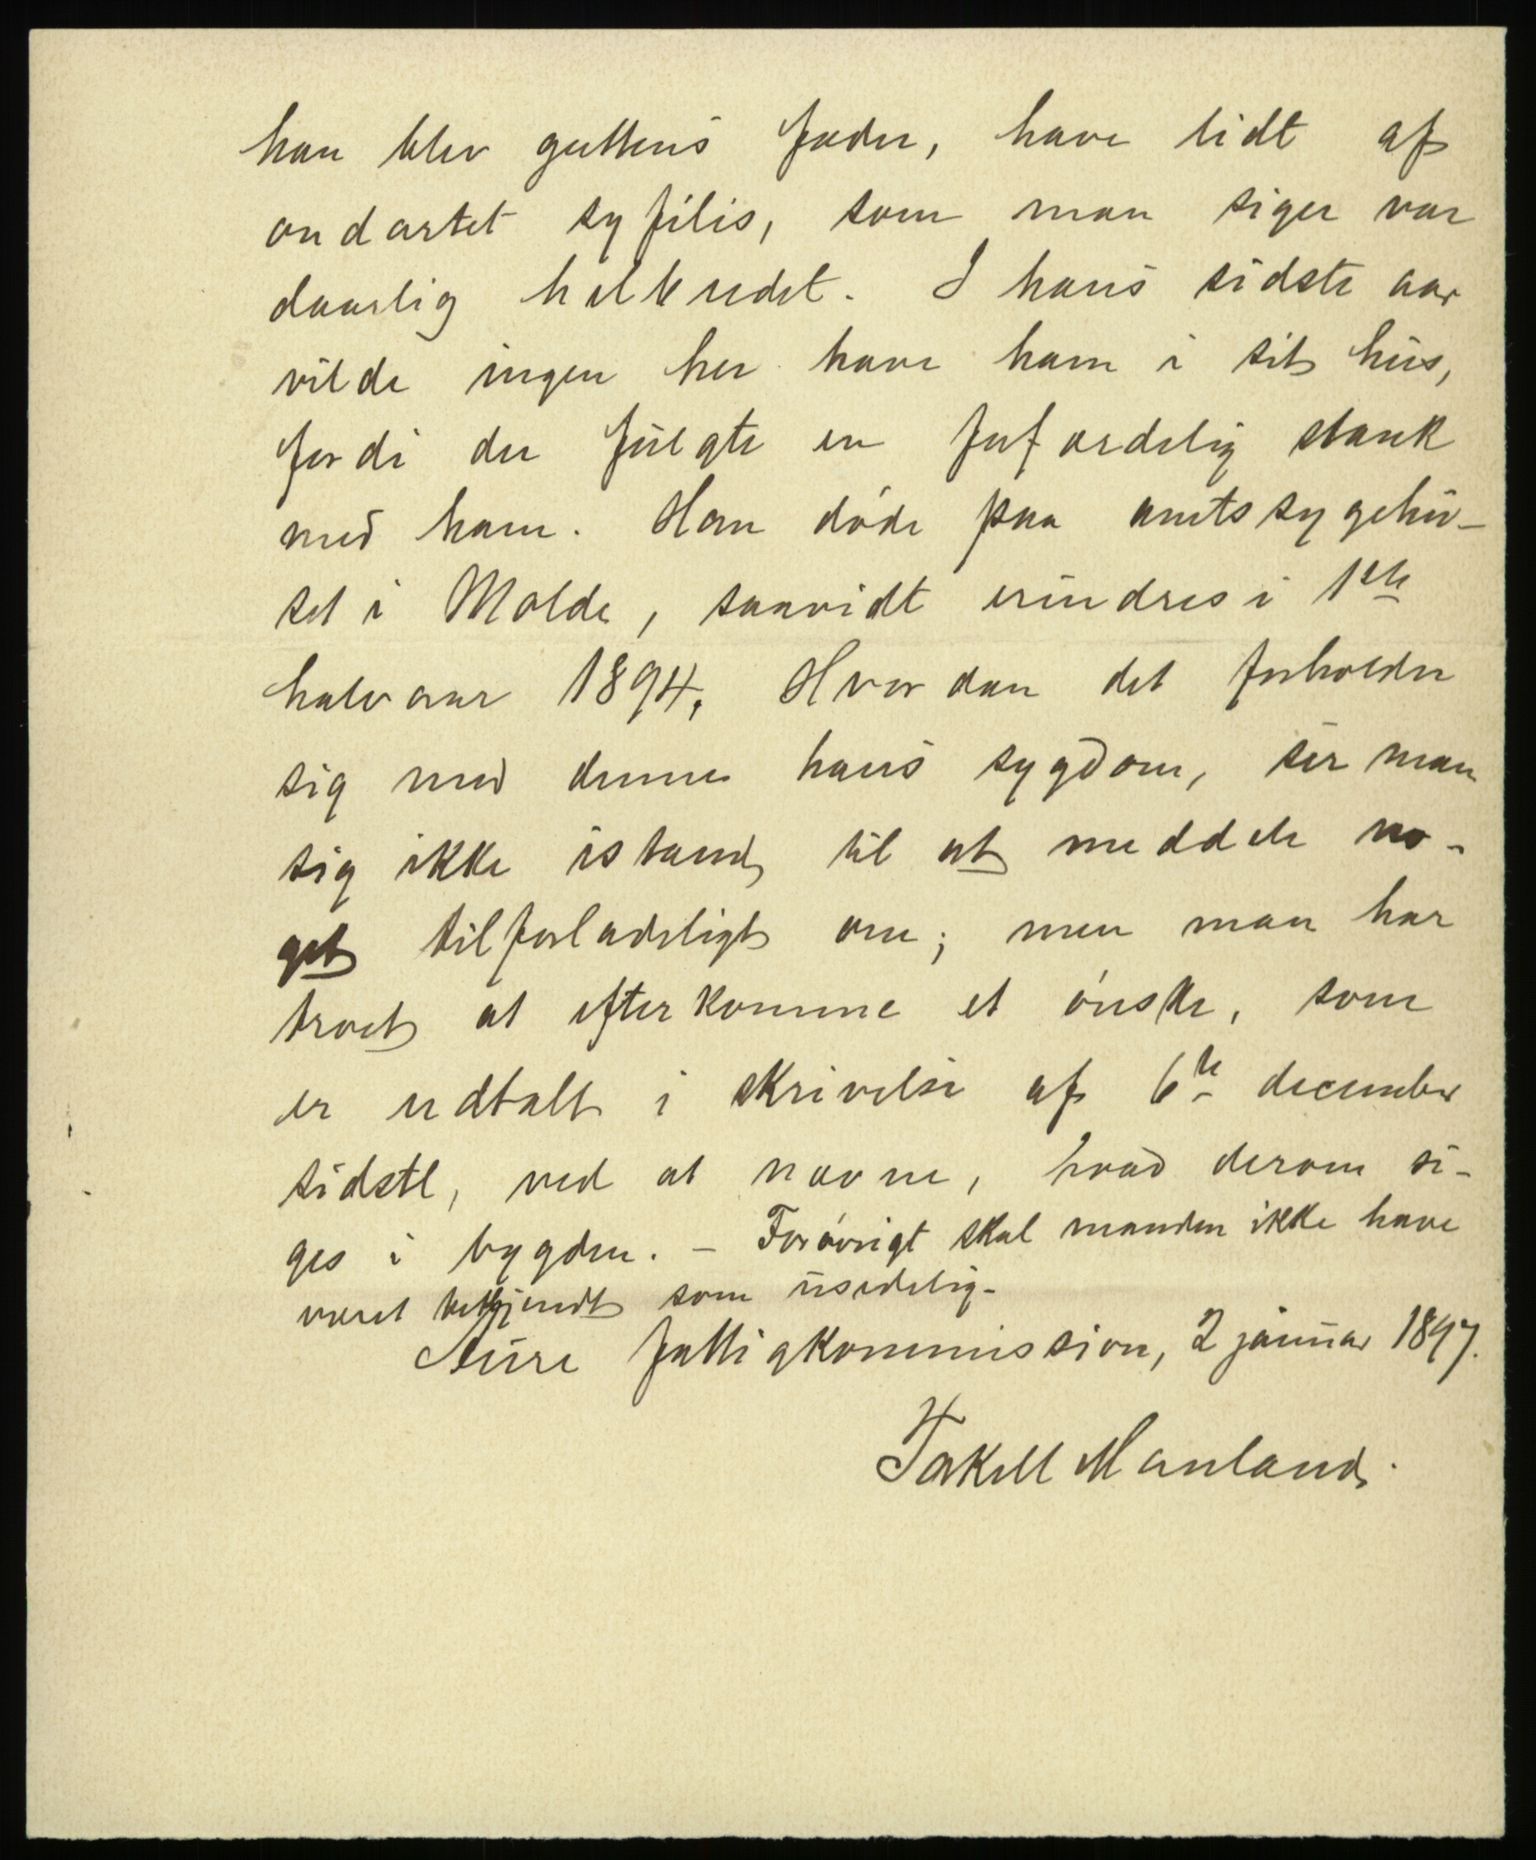 han blev guttens fader, have lidt af
ondartet syfilis, som man siger var
daarlig helbredet. I hans sidste aar
vilde ingen her have ham i sit hus,
fordi der fulgte en forfærdelig stank
med ham. Han døde paa amtssygehu-
set i Molde, saavidt erindres i 1ste
halvaar 1894. Hvordan det forholder
sig med denne hans sygdom, ser man
sig ikke istand til at meddele no-
get tilforladeligt om; men man har
troet at efterkomme et ønske, som
er udtalt i skrivelse af 6te december
sidstl, ved at nævne, hvad derom si-
ges i bygden. – Forøvrigt skal manden ikke have
været bekjendt som usædelig.
Aure fattigkommission, 2 januar 1897.
Torkell Mauland.